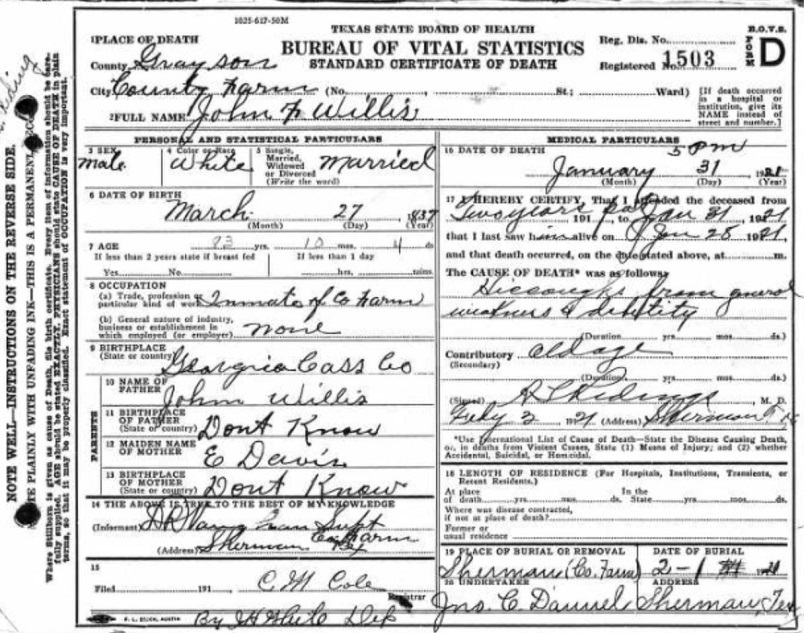 1025-617-50M
TEXAS STATE BOARD OF HEALTH
BUREAU OF VITAL STATISTICS
STANDARD CERTIFICATE OF DEATH
Reg. Dis. No.
Registered No. 1503
B.O.V.S.
FORM D
1 PLACE OF DEATH
County Grayson
City County Farm (No. St.; Ward)
[If death occurred in a hospital or institution, give its NAME instead of street and number.]
2 FULL NAME John F Willis
PERSONAL AND STATISTICAL PARTICULARS
3 SEX
Male
4 Color or Race
White
5 Single, Married, Widowed or Divorced (Write the word)
Married
6 DATE OF BIRTH
March 27, 1837
(Month) (Day) (Year)
7 AGE 83 yrs. 10 mos. 4 ds
If less than 2 years state if breast fed
If less than 1 day
Yes No hrs. mins
8 OCCUPATION
(a) Trade, profession or particular kind of work Inmate of Co Farm
(b) General nature of industry, business or establishment in which employed (or employer) none
9 BIRTHPLACE
(State or country) Georgia Cass Co
PARENTS
10 NAME OF FATHER
John Willis
11 BIRTHPLACE OF FATHER
(State or country) Dont Know
12 MAIDEN NAME OF MOTHER
E Davis
13 BIRTHPLACE OF MOTHER
(State or country) Dont Know
14 THE ABOVE IS TRUE TO THE BEST OF MY KNOWLEDGE
(Informant) Supt
Co Farm
(Address) Sherman Tex
15
Filed 191 C M Cole
Registrar
By Dep
MEDICAL PARTICULARS
16 DATE OF DEATH 5 PM
January 31 1921
(Month) (Day) (Year)
17 I HEREBY CERTIFY, That I attended the deceased from
Two years past 191 , to Jan 31 1921
that I last saw him alive on Jan 28 1921,
and that death occurred, on the date stated above, at m.
The CAUSE OF DEATH* was as follows:
Hiccoughs from general
weakness & debility
(Duration yrs. mos. ds.
Contributory old age
(Secondary)
(Duration) yrs. mos. ds.
(Signed) M. D.
Feby 2 1921 (Address) Sherman Tex
*Use International List of Cause of Death—State the Disease Causing Death, or, in deaths from Violent Causes, State (1) Means of Injury; and (2) whether Accidental, Suicidal, or Homicidal.
18 LENGTH OF RESIDENCE (For Hospitals, Institutions, Transients, or Recent Residents.)
At place of death yrs. mos. ds. In the State yrs. mos. ds.
Where was disease contracted, if not at place of death?
Former or usual residence
19 PLACE OF BURIAL OR REMOVAL
Sherman (Co. Farm)
DATE OF BURIAL
2-1 1921
20 UNDERTAKER
Jno. C. Dannel
ADDRESS
Sherman, Tex
NOTE WELL—INSTRUCTIONS ON THE REVERSE SIDE.
PLAINLY WITH UNFADING INK—THIS IS A PERMANENT